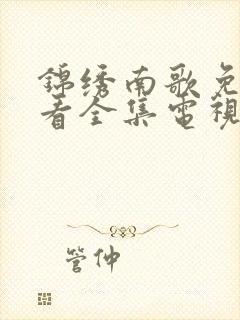 錦绣南歌免
看全集電視
管仲